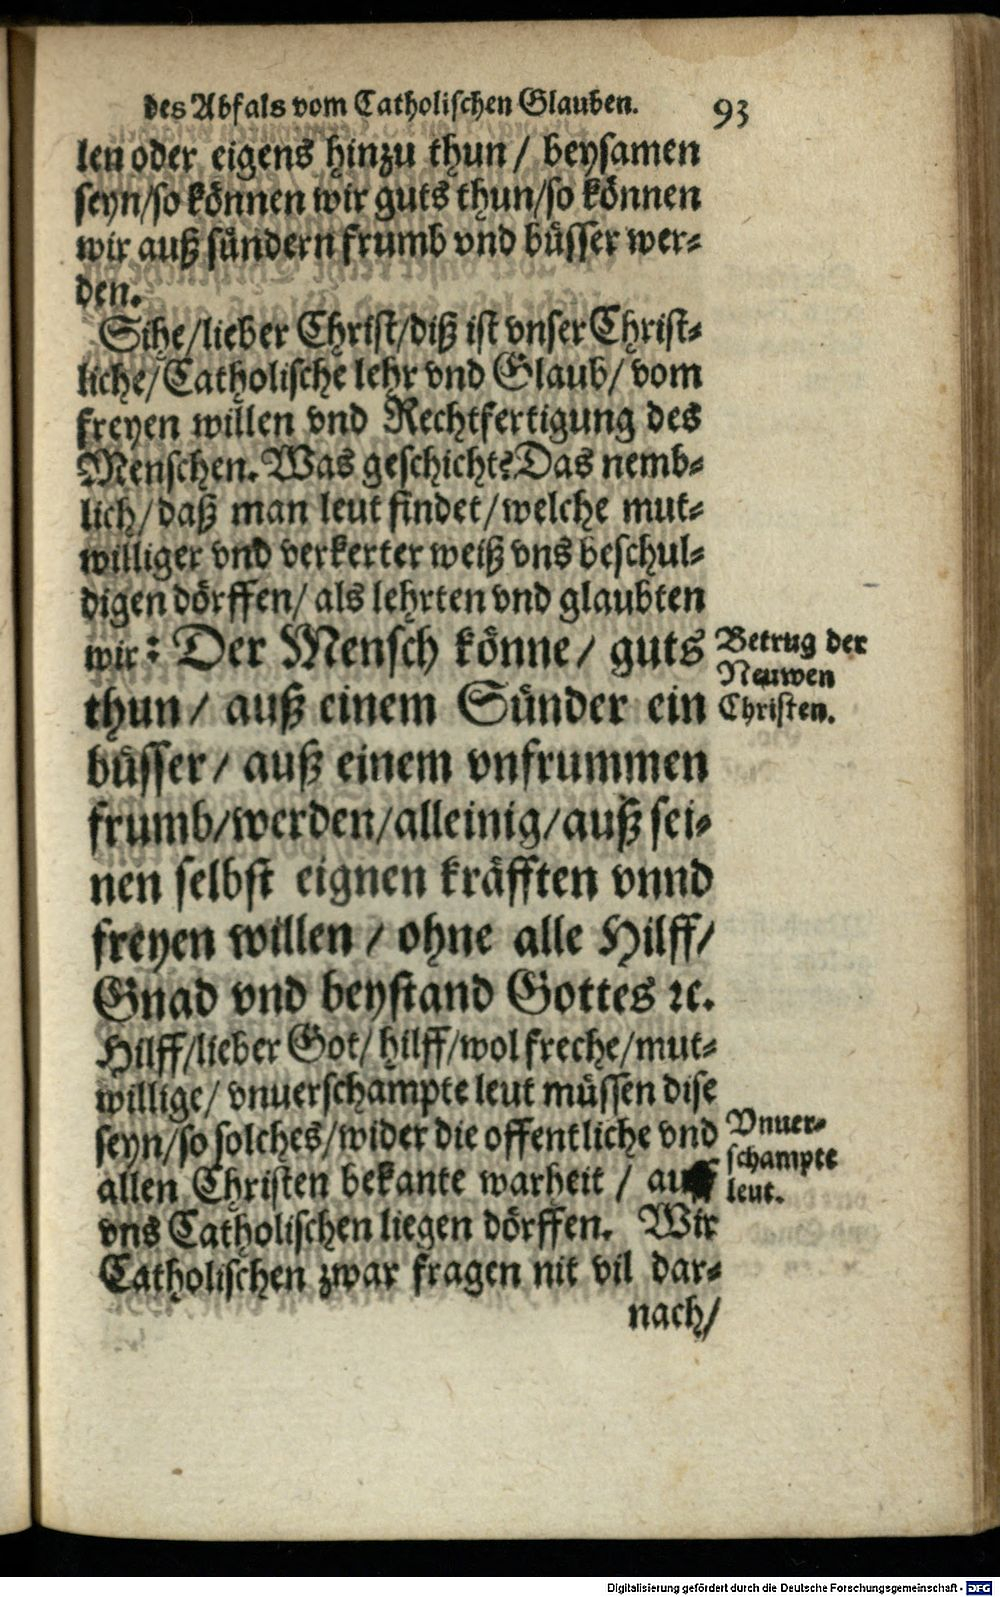 des Abfals vom Catholischen Glauben. 93
len oder eigens hinzu thun / beysamen
seyn/so können wir guts thun/so können
wir auß sündern frumb vnd büsser wer-
den.
Sihe/lieber Christ/diß ist vnser Christ-
liche/Catholische lehr vnd Glaub/ vom
freyen willen vnd Rechtfertigung des
Menschen. Was geschicht? Das nemb-
lich/daß man leut findet/welche mut-
williger vnd verkerter weiß vns beschul-
digen dörffen/ als lehrten vnd glaubten
wir: Der Mensch könne/ guts
thun/ auß einem Sünder ein
büsser/ auß einem vnfrummen
frumb/werden/alleinig/auß sei-
nen selbst eignen kräfften vnnd
freyen willen / ohne alle Hilff/
Gnad vnd beystand Gottes ꝛc.
Hilff/lieber Got/ hilff/wol freche/mut-
willige/ vnuerschampte leut müssen dise
seyn/so solches/wider die offentliche vnd
allen Christen bekante warheit / auff
vns Catholischen liegen dörffen. Wir
Catholischen zwar fragen nit vil dar-
nach/
Betrug der
Neuwen
Christen.
Vnuer-
schampte
leut.
Digitalisierung gefördert durch die Deutsche Forschungsgemeinschaft - DFG